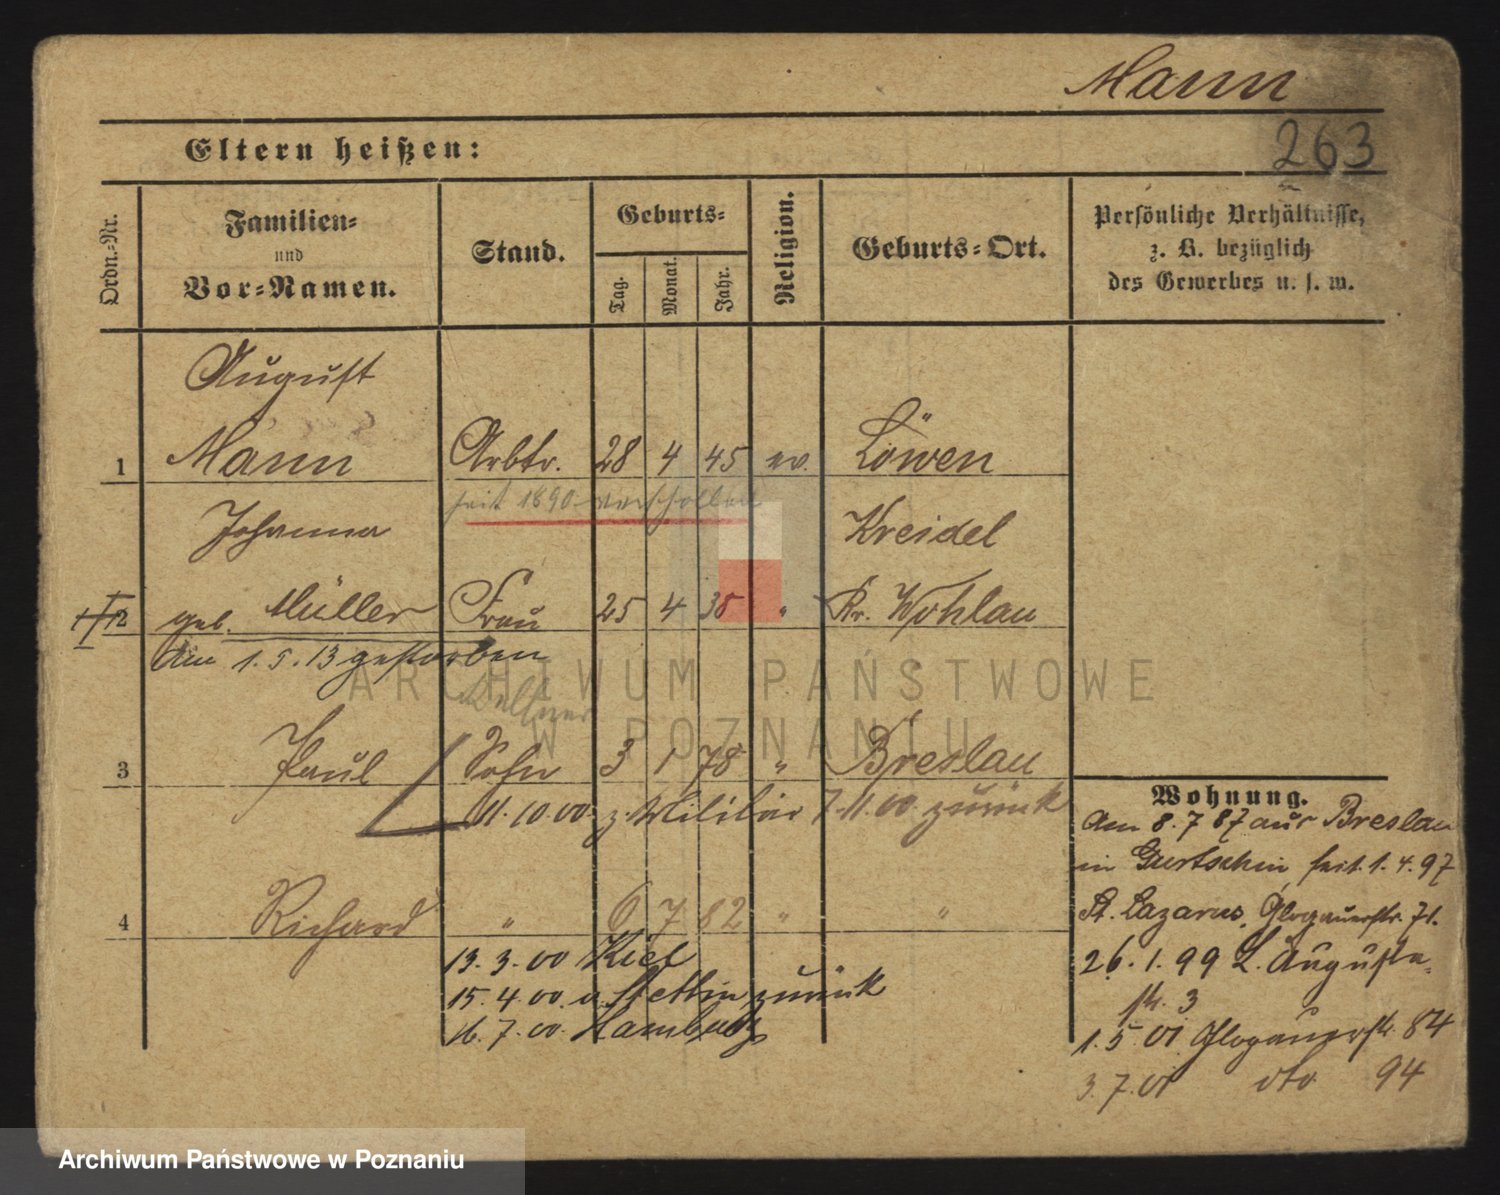 Mann
263
Eltern heißen:
Ordn.-Nr.
Familien-
und
Vor-Namen.
Stand.
Geburts-
Tag.
Monat.
Jahr.
Religion.
Geburts-Ort.
Persönliche Verhältnisse,
z. B. bezüglich
des Gewerbes u. s. w.
August
1 Mann Arbtr. 28 4 45 ev. Löwen
seit 1890 verschollen
Johanna Kreidel
2 geb. Müller Frau 25 4 38 " Kr. Wohlau
Am 1.5.13 gestorben
Kellner
3 Paul Sohn 3 1 78 " Breslau
11.10.00 z. Militär 7.11.00 zurück
4 Richard " 6 7 82 " "
13.3.00 Kiel
15.4.00 v. Stettin zurück
16.7.00 Hamburg
Wohnung.
Am 8.7 87 aus Breslau
in Gurtschin seit 1.4.97
St. Lazarus, Glogauerstr. 71.
26.1.99 L. Augusta-
str. 3
1.5.01 Glogauerstr. 84
3.7.01 dto 94
ARCHIWUM PAŃSTWOWE
W POZNANIU
Archiwum Państwowe w Poznaniu